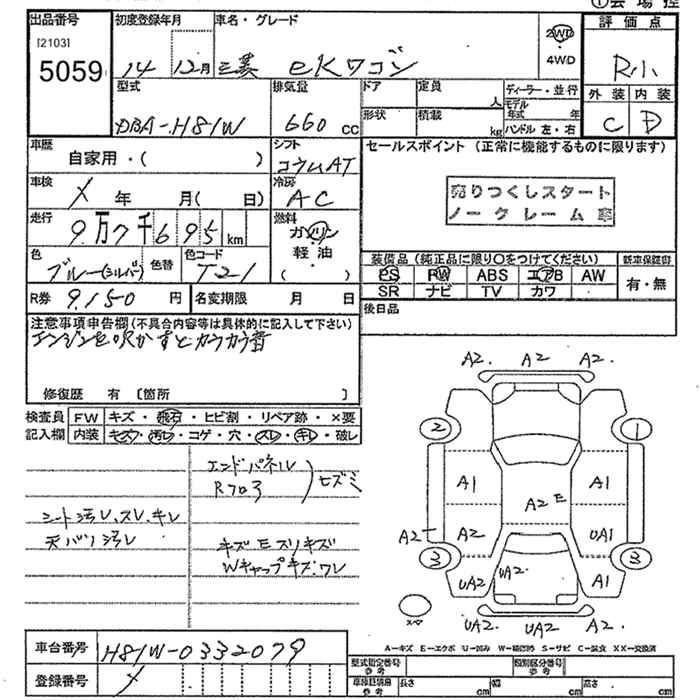 ①会場控
出品番号
[2103]
5059
初度登録年月
14 12月
車名・グレード
三菱 eKワゴン
2WD
・
4WD
評価点
R小
外装 内装
C D
型式
DBA-H81W
排気量
660 cc
ドア
定員
人
ディーラー・並行
モデル年式 年
形状
積載
kg
ハンドル 左・右
車歴
自家用・( )
シフト
コラムAT
セールスポイント (正常に機能するものに限ります)
売りつくしスタート
ノークレーム車
車検
メ 年 月( 日)
冷房
AC
走行
9万7千695km
燃料
ガソリン
軽油
( )
色
ブルー(シルバ)
色替
色コード
T21
装備品(純正品に限り○をつけてください)
新車保証書
PS PW ABS エアB AW
SR ナビ TV カワ
有・無
R券 9,150 円
名変期限 月 日
後日品
注意事項申告欄(不具合内容等は具体的に記入して下さい)
エンジンを吹かすとカラカラ音
修復歴 有 〔箇所 〕
検査員記入欄
FW キズ・飛石・ヒビ割・リペア跡・×要
内装 キズ・汚レ・コゲ・穴・スレ・キレ・破レ
エンドパネル
Rフロア
ヒズミ
シート汚レ、スレ、キレ
天バリ汚レ
キズ E スリキズ
Wキャップキズ.ワレ
A2. A2 A2.
2 1
A1 A1
A2 E
A2 A2 UA1
3 3
UA2 UA2. A1
スペ
UA2. UA2 A2.
A-キズ E-エクボ U-凹み W-補修跡 S-サビ C-腐食 XX-交換済
車台番号 H81W-0332079
登録番号 メ
型式指定番号 参考
類別区分番号 参考
車検証数値 参考
長さ cm
幅 cm
高さ cm